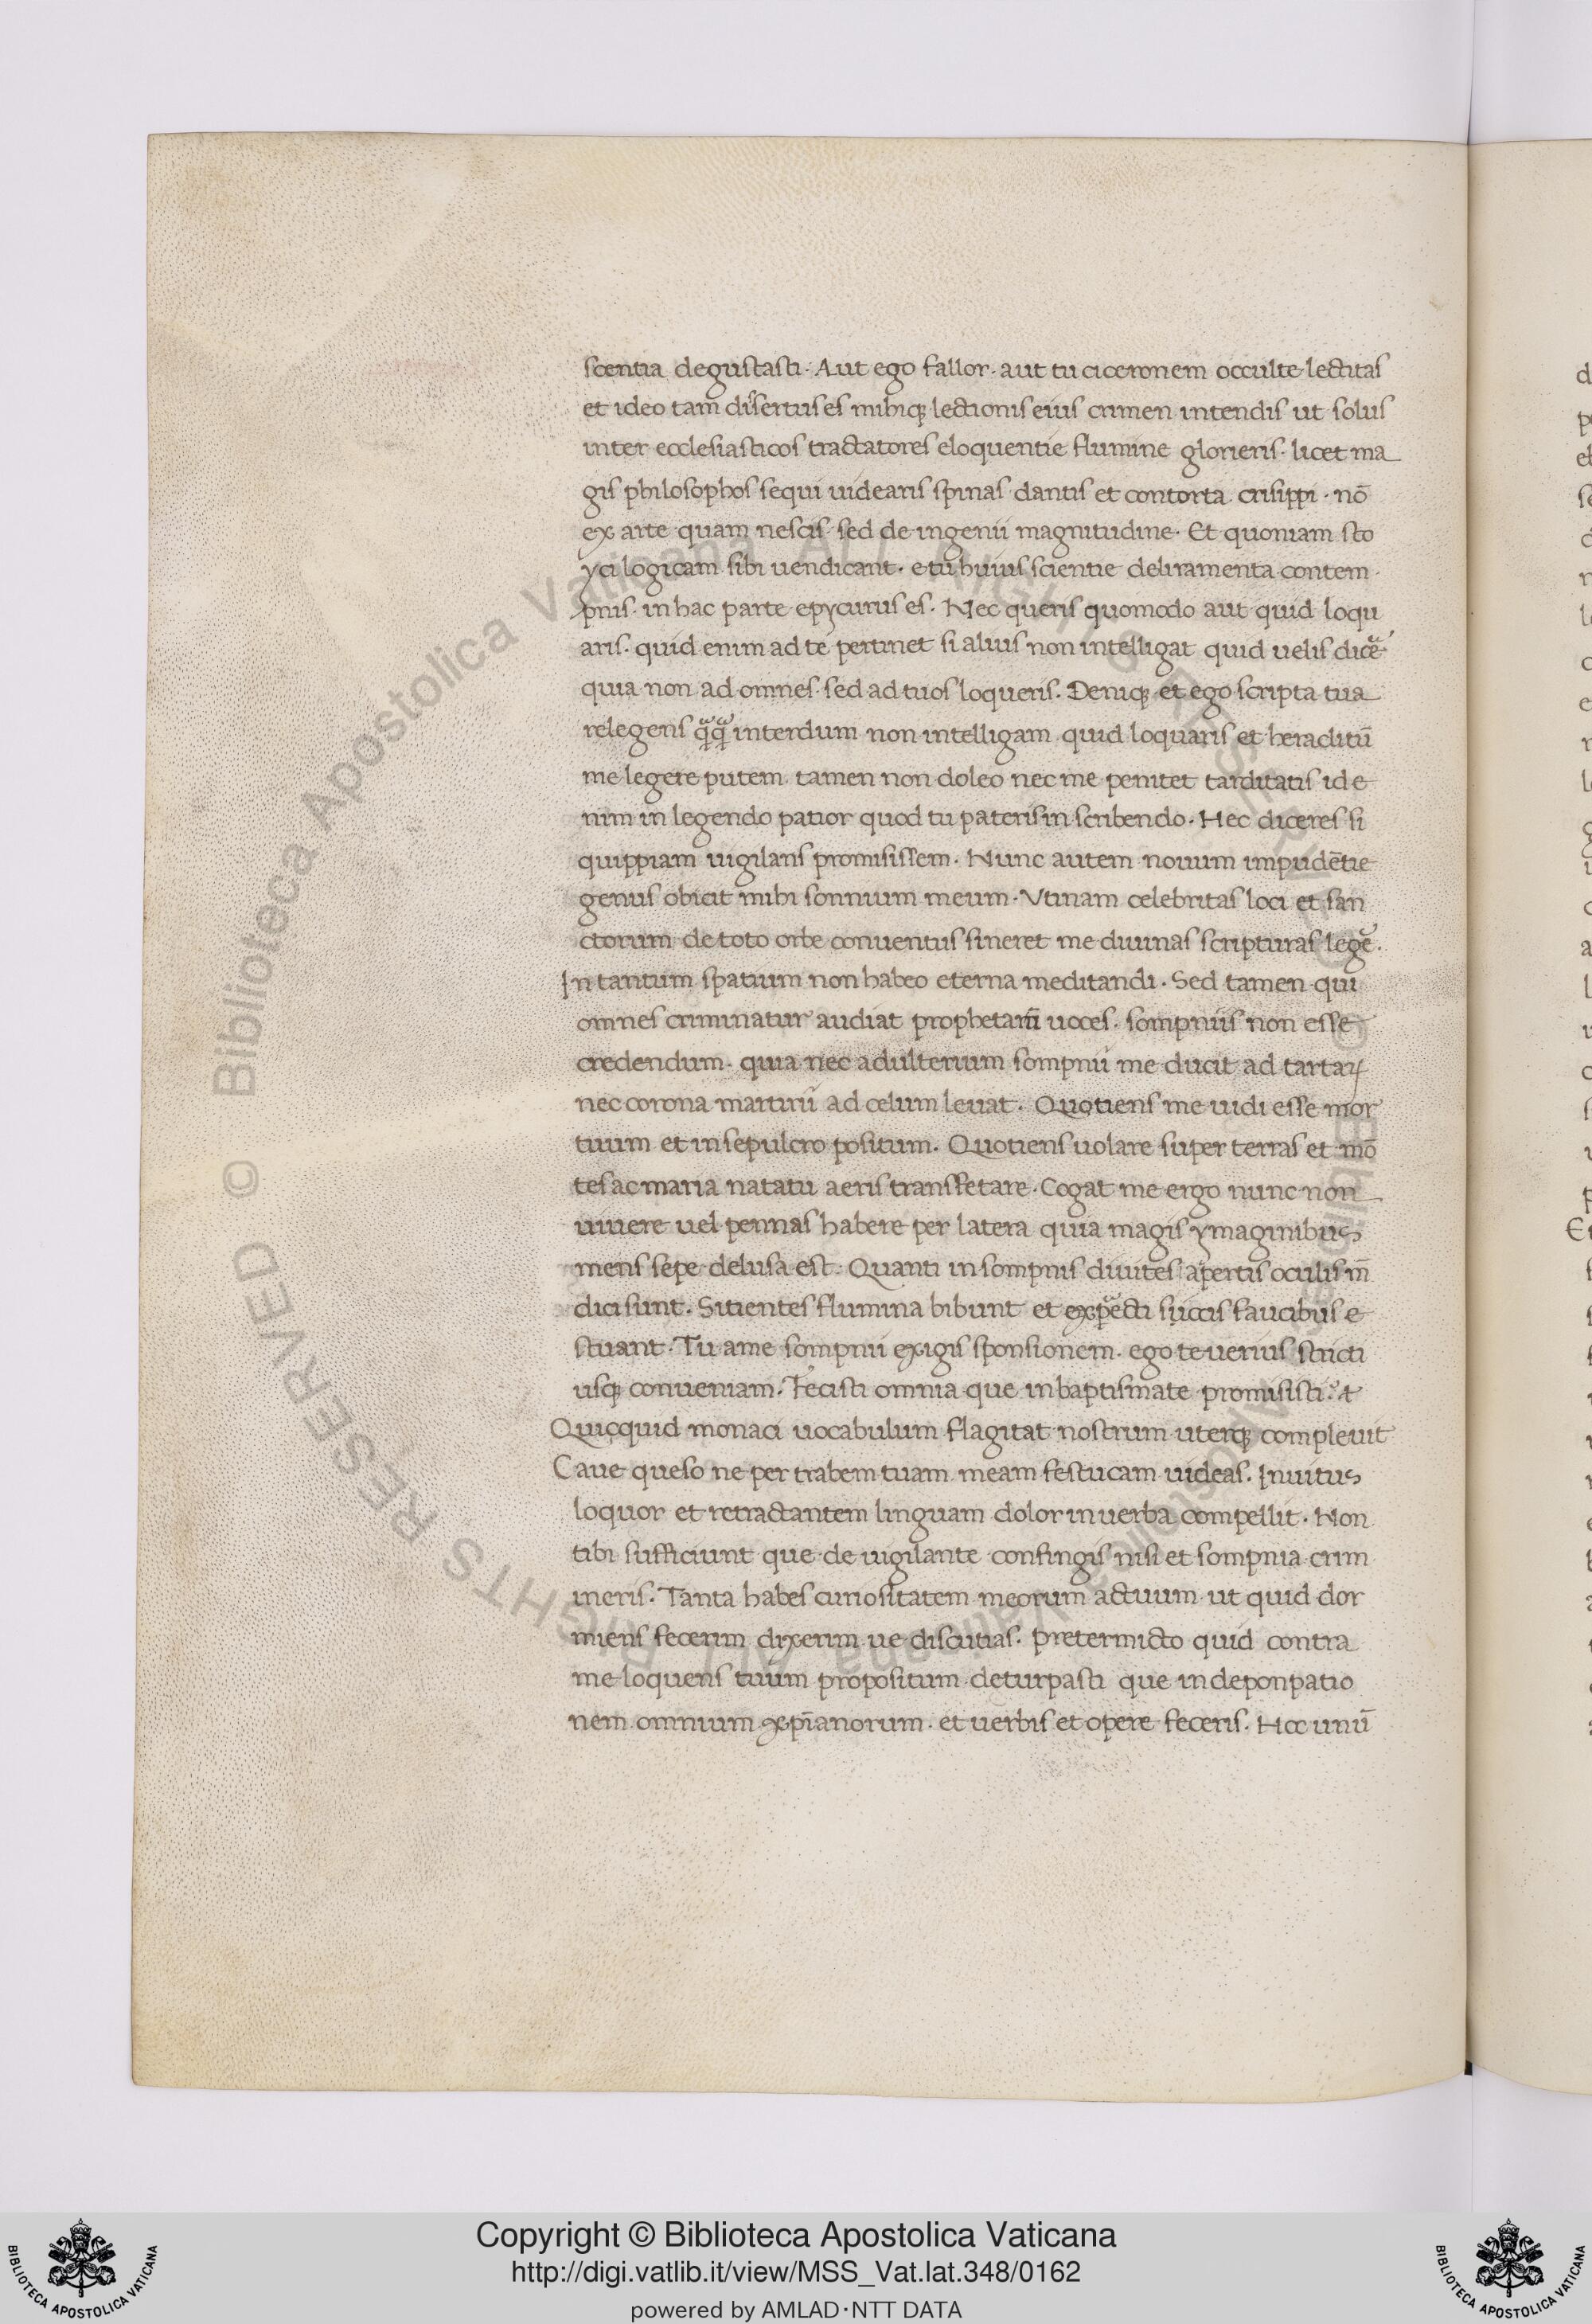 scentia degustasti. Aut ego fallor. aut tu ciceronem occulte lectitas
et ideo tam disertus es mihiqꝫ lectionis eius crimen intendis ut solus
inter ecclesiasticos tractatores eloquentie flumine glorieris. licet ma
gis philosophos sequi uidearis spinas dantis et contorta crisippi. nō
ex arte quam nescis sed de ingenii magnitudine. Et quoniam sto
yci logicam sibi uendicant. et tu huius scientie deliramenta contem
pnis. in hac parte epycurus es. Nec queris quomodo aut quid loqu
aris. quid enim ad te pertinet si alius non intelligat quid uelis dice
quia non ad omnes sed ad tuos loqueris. Deniqꝫ et ego scripta tua
relegens qͣqͣ interdum non intelligam quid loquaris et heraclitū
me legere putem tamen non doleo nec me penitet tarditatis id e
nim in legendo patior quod tu pateris in scribendo. Hec diceres si
quippiam uigilans promisissem. Nunc autem nouum impudētie
genus obicit mihi somnium meum. Vtinam celebritas loci et san
ctorum de toto orbe conuentus sineret me diuinas scripturas lege.
In tantum spatium non habeo eterna meditandi. Sed tamen qui
omnes criminatur audiat prophetam̄ uoces. sompniis non esse
credendum. quia nec adulterium sompnii me ducit ad tartaꝝ
nec corona martirū ad celum leuat. Quotiens me uidi esse mor
tuum et in sepulcro positum. Quotiens uolare super terras et mō
tes ac maria natatu aeris transfetare. Cogat me ergo nunc non
uiuere uel pennas habere per latera quia magis ymaginibus
mens sepe delusa est. Quanti in sompnis diuites apertis oculis m̄
dici sunt. Sitientes flumina bibunt et experecti siccis faucibus e
stuant. Tu a me sompnii exigis sponsionem. ego te uerius stricti
usqꝫ conueniam. Fecisti omnia que in baptismate promisisti.
Quicquid monaci uocabulum flagitat nostrum uterqꝫ compleuit
Caue queso ne per trabem tuam meam festucam uideas. Inuitus
loquor et retractantem linguam dolor in uerba compellit. Non
tibi sufficiunt que de uigilante confingis nisi et sompnia crim
ineris. Tanta habes curiositatem meorum actuum ut quid dor
miens fecerim dixerim ue discutias. Pretermicto quid contra
me loquens tuum propositum deturpasti que in deponpatio
nem omnium xp̄ianorum. et uerbis et opere feceris. Hoc unū
Copyright © Biblioteca Apostolica Vaticana
http://digi.vatlib.it/view/MSS_Vat.lat.348/0162
powered by AMLAD·NTT DATA